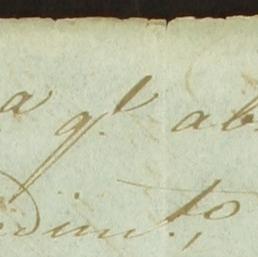 a q.l ab
dim.to,